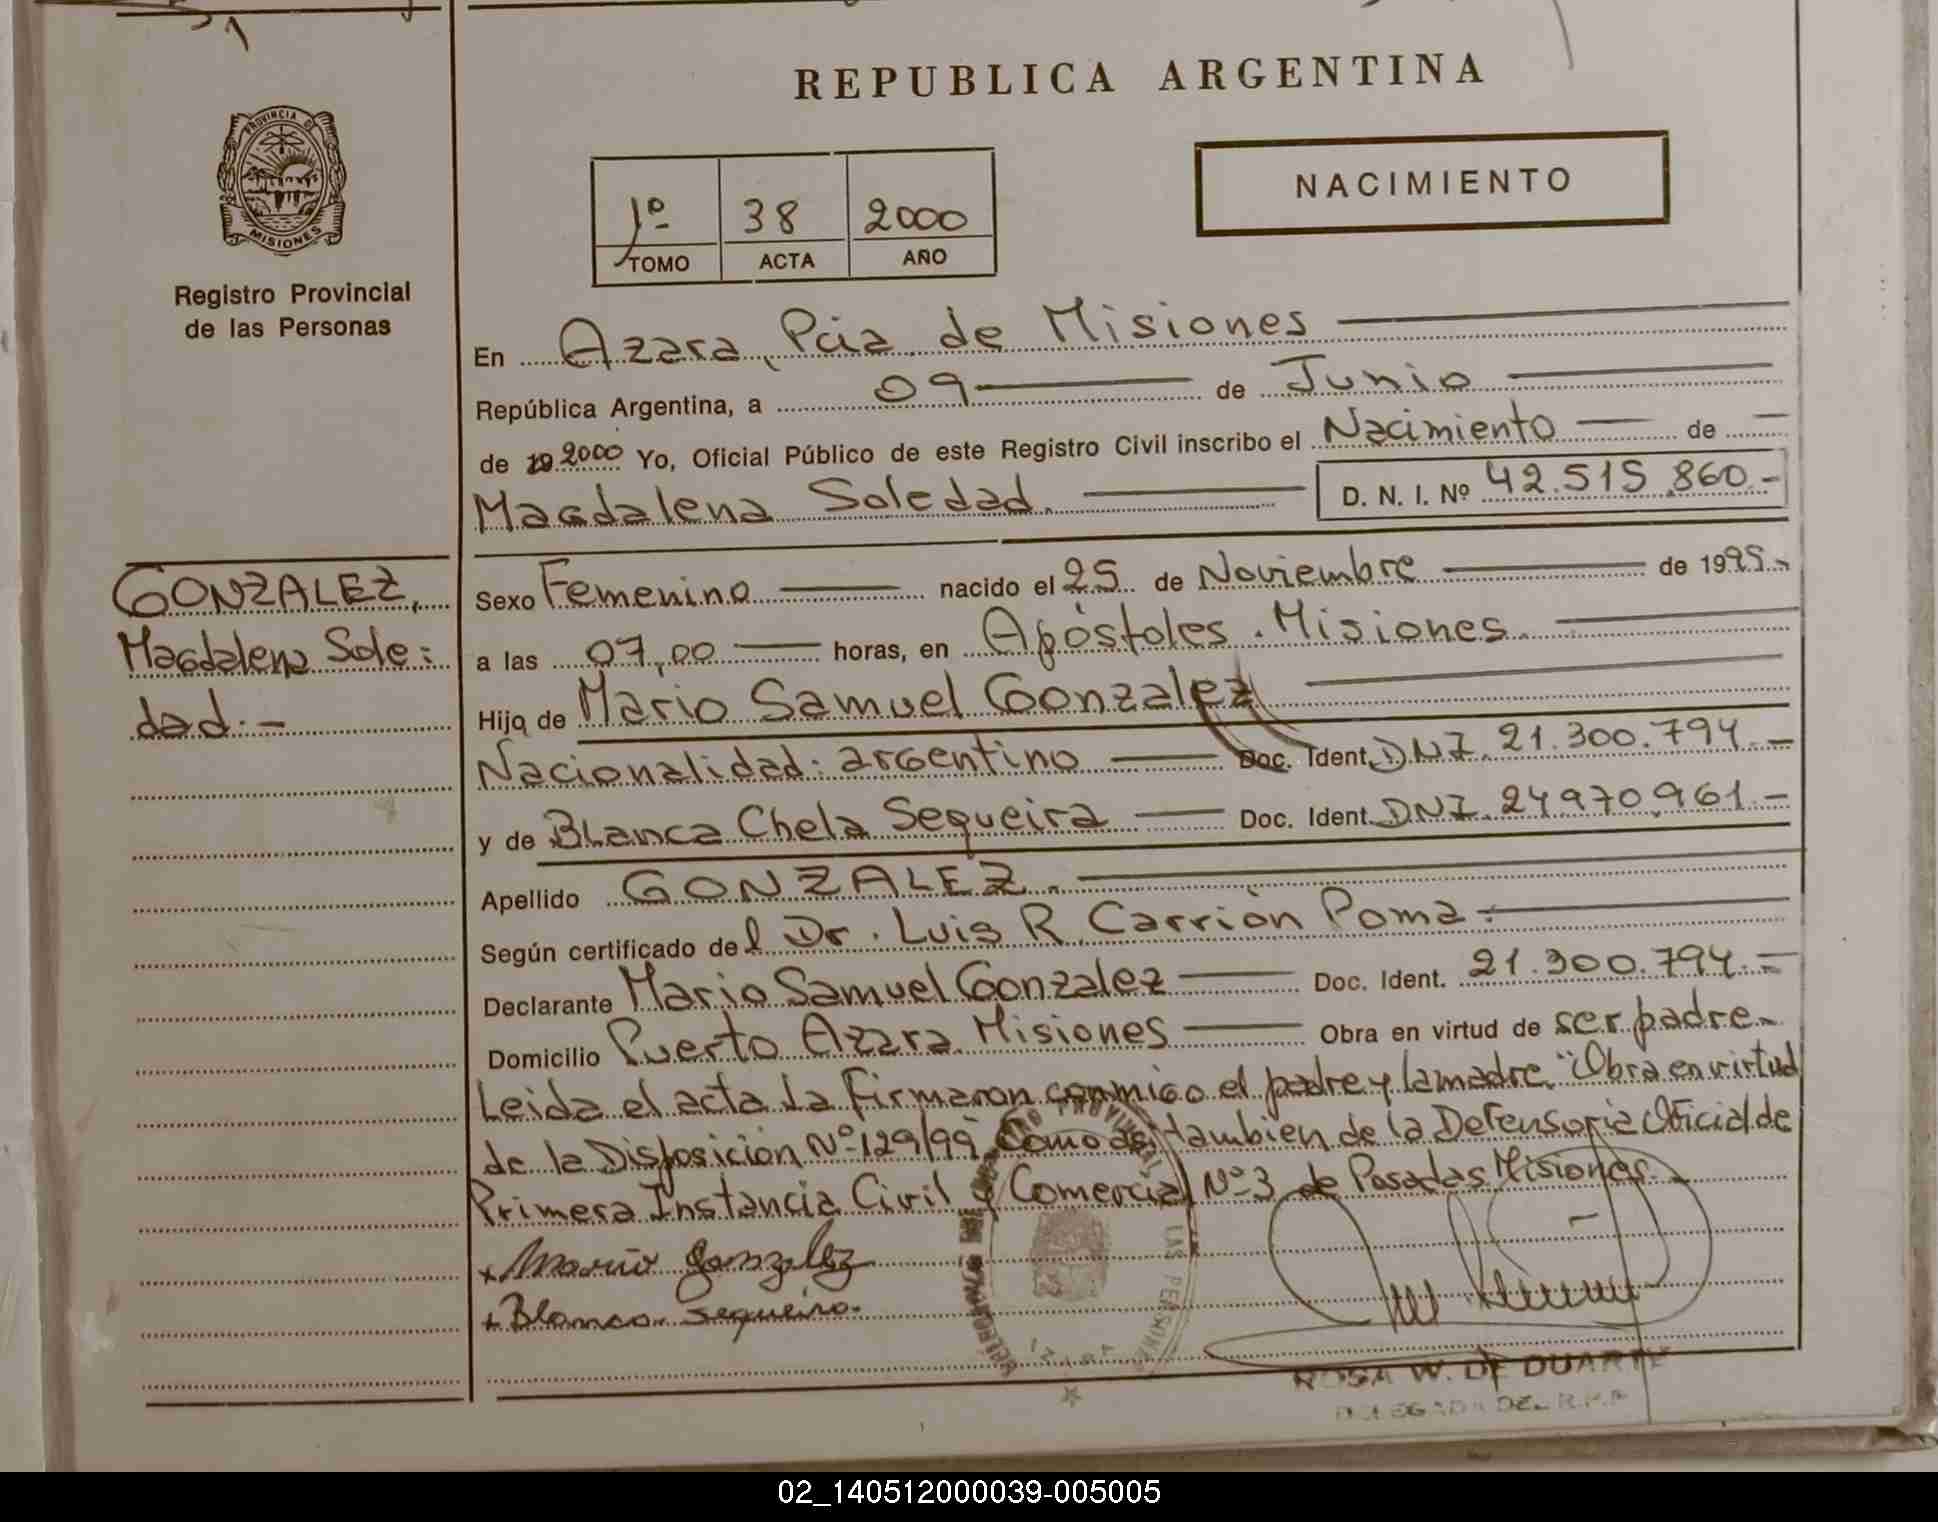 REPUBLICA ARGENTINA
PROVINCIA DE
MISIONES
Registro Provincial
de las Personas
NACIMIENTO
1º 38 2000
TOMO ACTA AÑO
En Azara, Pcia de Misiones
República Argentina, a 09 de Junio
de 19 2000 Yo, Oficial Público de este Registro Civil inscribo el Nacimiento de
Magdalena Soledad. D. N. I. Nº 42.515.860.-
GONZALEZ,
Magdalena Sole=
dad.-
Sexo Femenino nacido el 25 de Noviembre de 1995.-
a las 07,00 horas, en Apóstoles. Misiones.
Hijo de Mario Samuel Gonzalez
Nacionalidad: argentino Doc. Ident. DNI. 21.300.794.-
y de Blanca Chela Sequeira Doc. Ident. DNI. 24.970.961.-
Apellido GONZALEZ.
Según certificado del Dr. Luis R. Carrión Poma.
Declarante Mario Samuel Gonzalez Doc. Ident. 21.300.794.-
Domicilio Puerto Azara. Misiones Obra en virtud de ser padre.
Leida el acta la Firmaron conmigo el padre y la madre. "Obra en virtud
de la Disposición Nº 129/99 Como así tambien de la Defensoria Oficial de
Primera Instancia Civil y Comercial Nº 3 de Posadas Misiones.
x Mario Gonzalez
x Blanca Sequeira.
LAS PERSONAS
ROSA W. DE DUARTE
DELEGADA DEL R.P.P
02_140512000039-005005